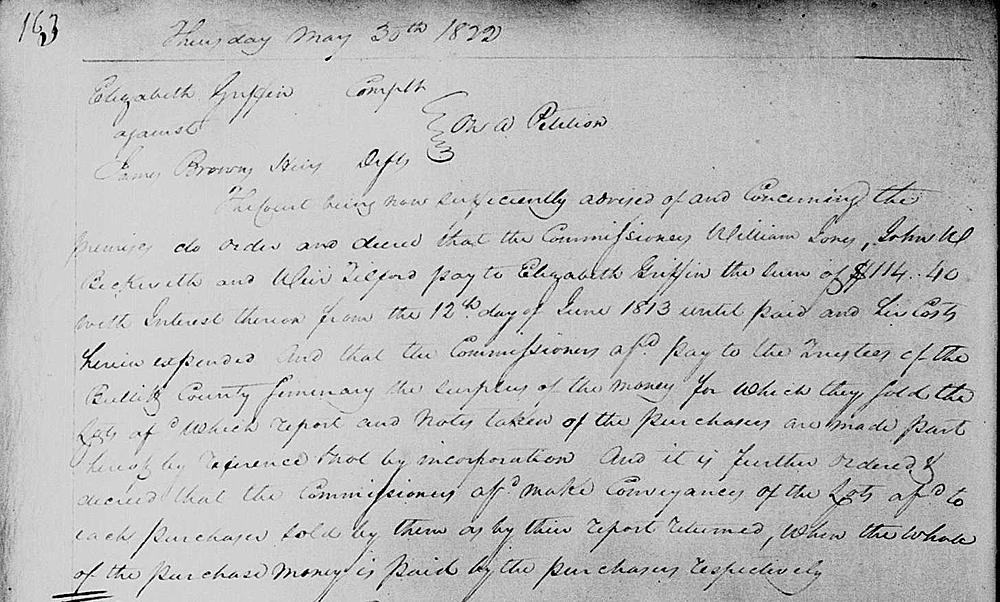 163
Thursday May 30th 1822
Elizabeth Griffin Complt
against On a Petition
James Browns Heirs Defts
The Court being now sufficiently advised of and Concerning the
premises do order and decree that the Commissioners William Jones, John W
Beckwith and Weir Tilford pay to Elizabeth Griffin the Sum of $114.40
with Interest thereon from the 12th day of June 1813 until paid and her Costs
herein expended And that the Commissioners afd pay to the Trustees of the
Bullitt County Seminary the surplus of the money for which they sold the
Lots afd which report and Notes taken of the purchasers are made part
hereof by reference & not by incorporation And it is further ordered &
decreed that the Commissioners afd make Conveyances of the Lots afd to
each purchaser sold by them as by their report returned, when the whole
of the purchase money is paid by the purchasers respectively